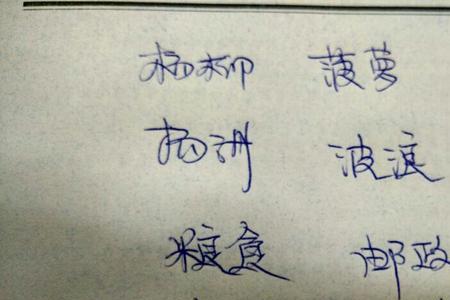 杨柳 菠萝
扬洲 波浪
粮食 邮政